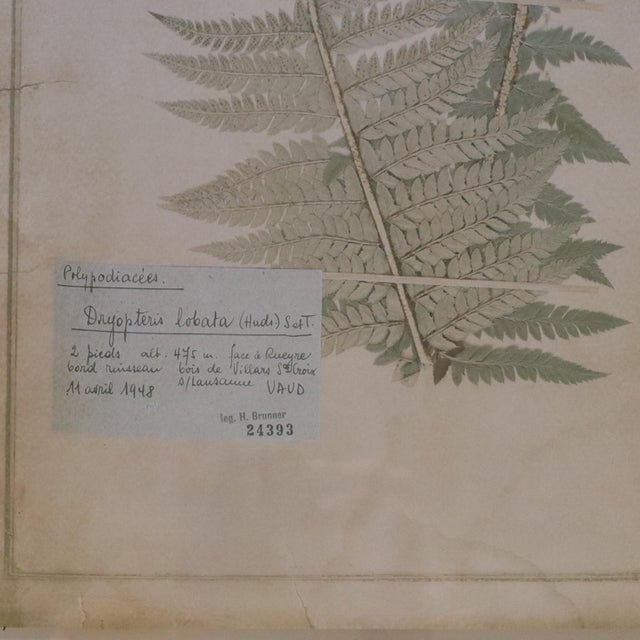 Polypodiacées.
Dryopteris lobata (Huds) S et T.
2 pieds alt. 475 m. face à Rueyre
bord ruisseau bois de Villars Ste Croix
11 avril 1948 s/Lausanne VAUD
leg. H. Brunner
24393